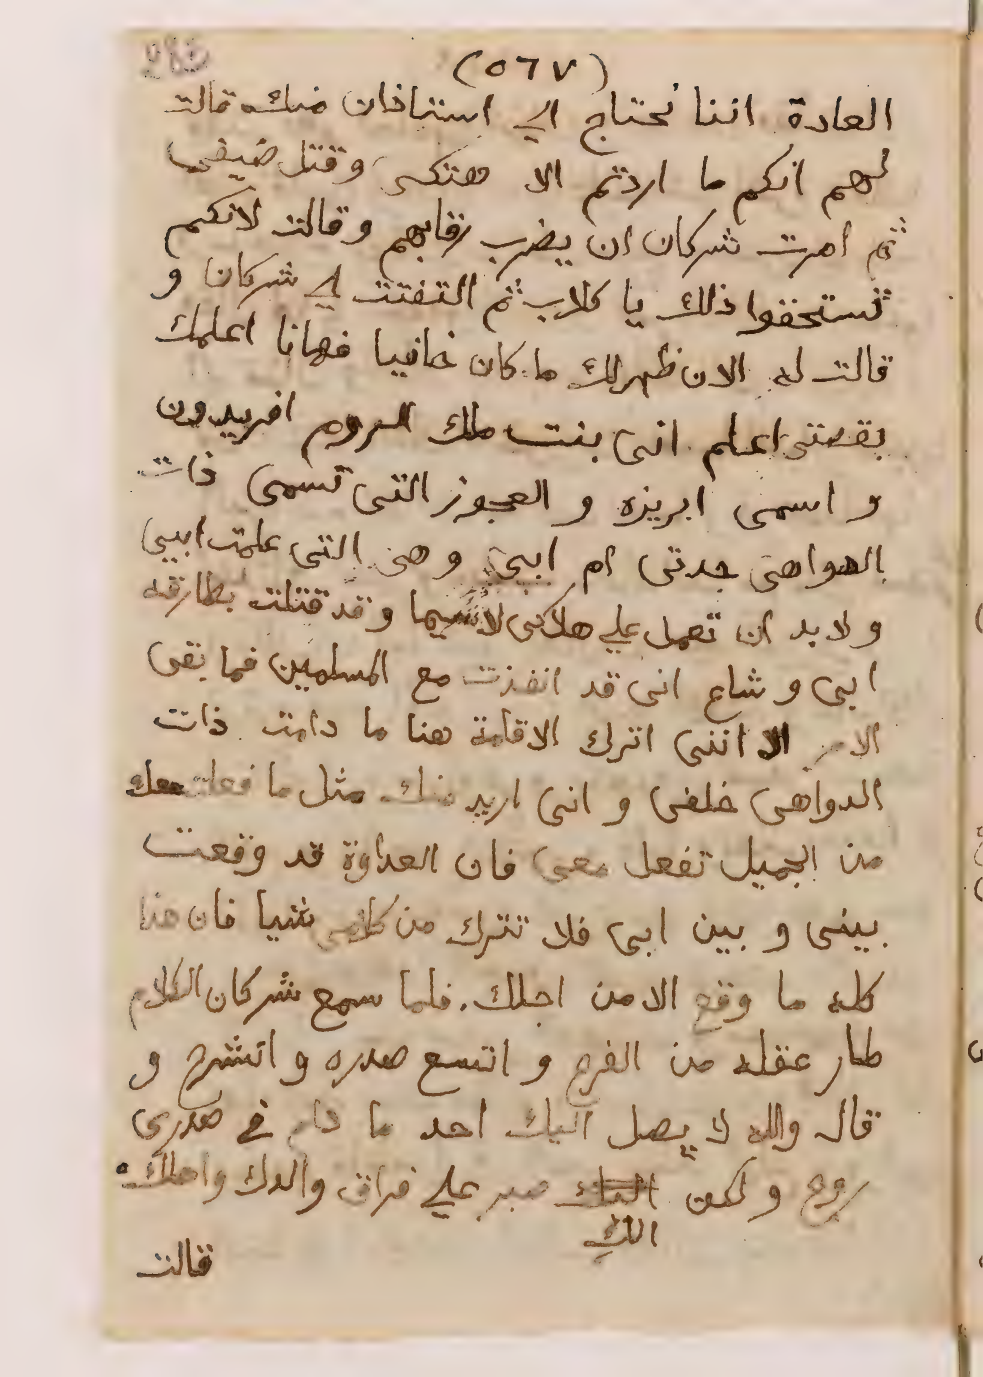 (٥٦٧)
العادة اننا نحتاج الي استئاذان منك قالت
لهم انكم ما اردتم الا هتكى وقتل ضيفى
ثم امرت شركان ان يضرب رقابهم وقالت لانكم
تستحقوا ذلك يا كلاب ثم التفتت لي شركان و
قالت له الان ظهرلك ما كان خافيا فهاانا اعلمك
بقصتى اعلم انى بنت ملك الروم افريدون
و اسمى ابريزه و العجوز التى تسمى ذات
الدواهى جدتى ام ابيى و هى التى علمت ابيى
و لا بد ان تعمل علي هلاكى لاسيما و قد قتلت بطارقه
ابى و شاع انى قد انفذت مع المسلمين فما بقى
الامر الا اننى اترك الاقامة هنا ما دامت ذات
الدواهى خلفى و انى اريد منك مثل ما فعلت معك
من الجميل تفعل معى فان العداوة قد وقعت
بينى و بين ابى فلا تترك من كلامى شيا فان هذا
كله ما وقع الا من اجلك. فلما سمع شركان الكلام
طار عقله من الفرح و اتسع صدره و انشرح و
قال والله لا يصل اليك احد ما دام في صدرى
روح و لكن الك صبر علي فراق والدك واهلك
قالت